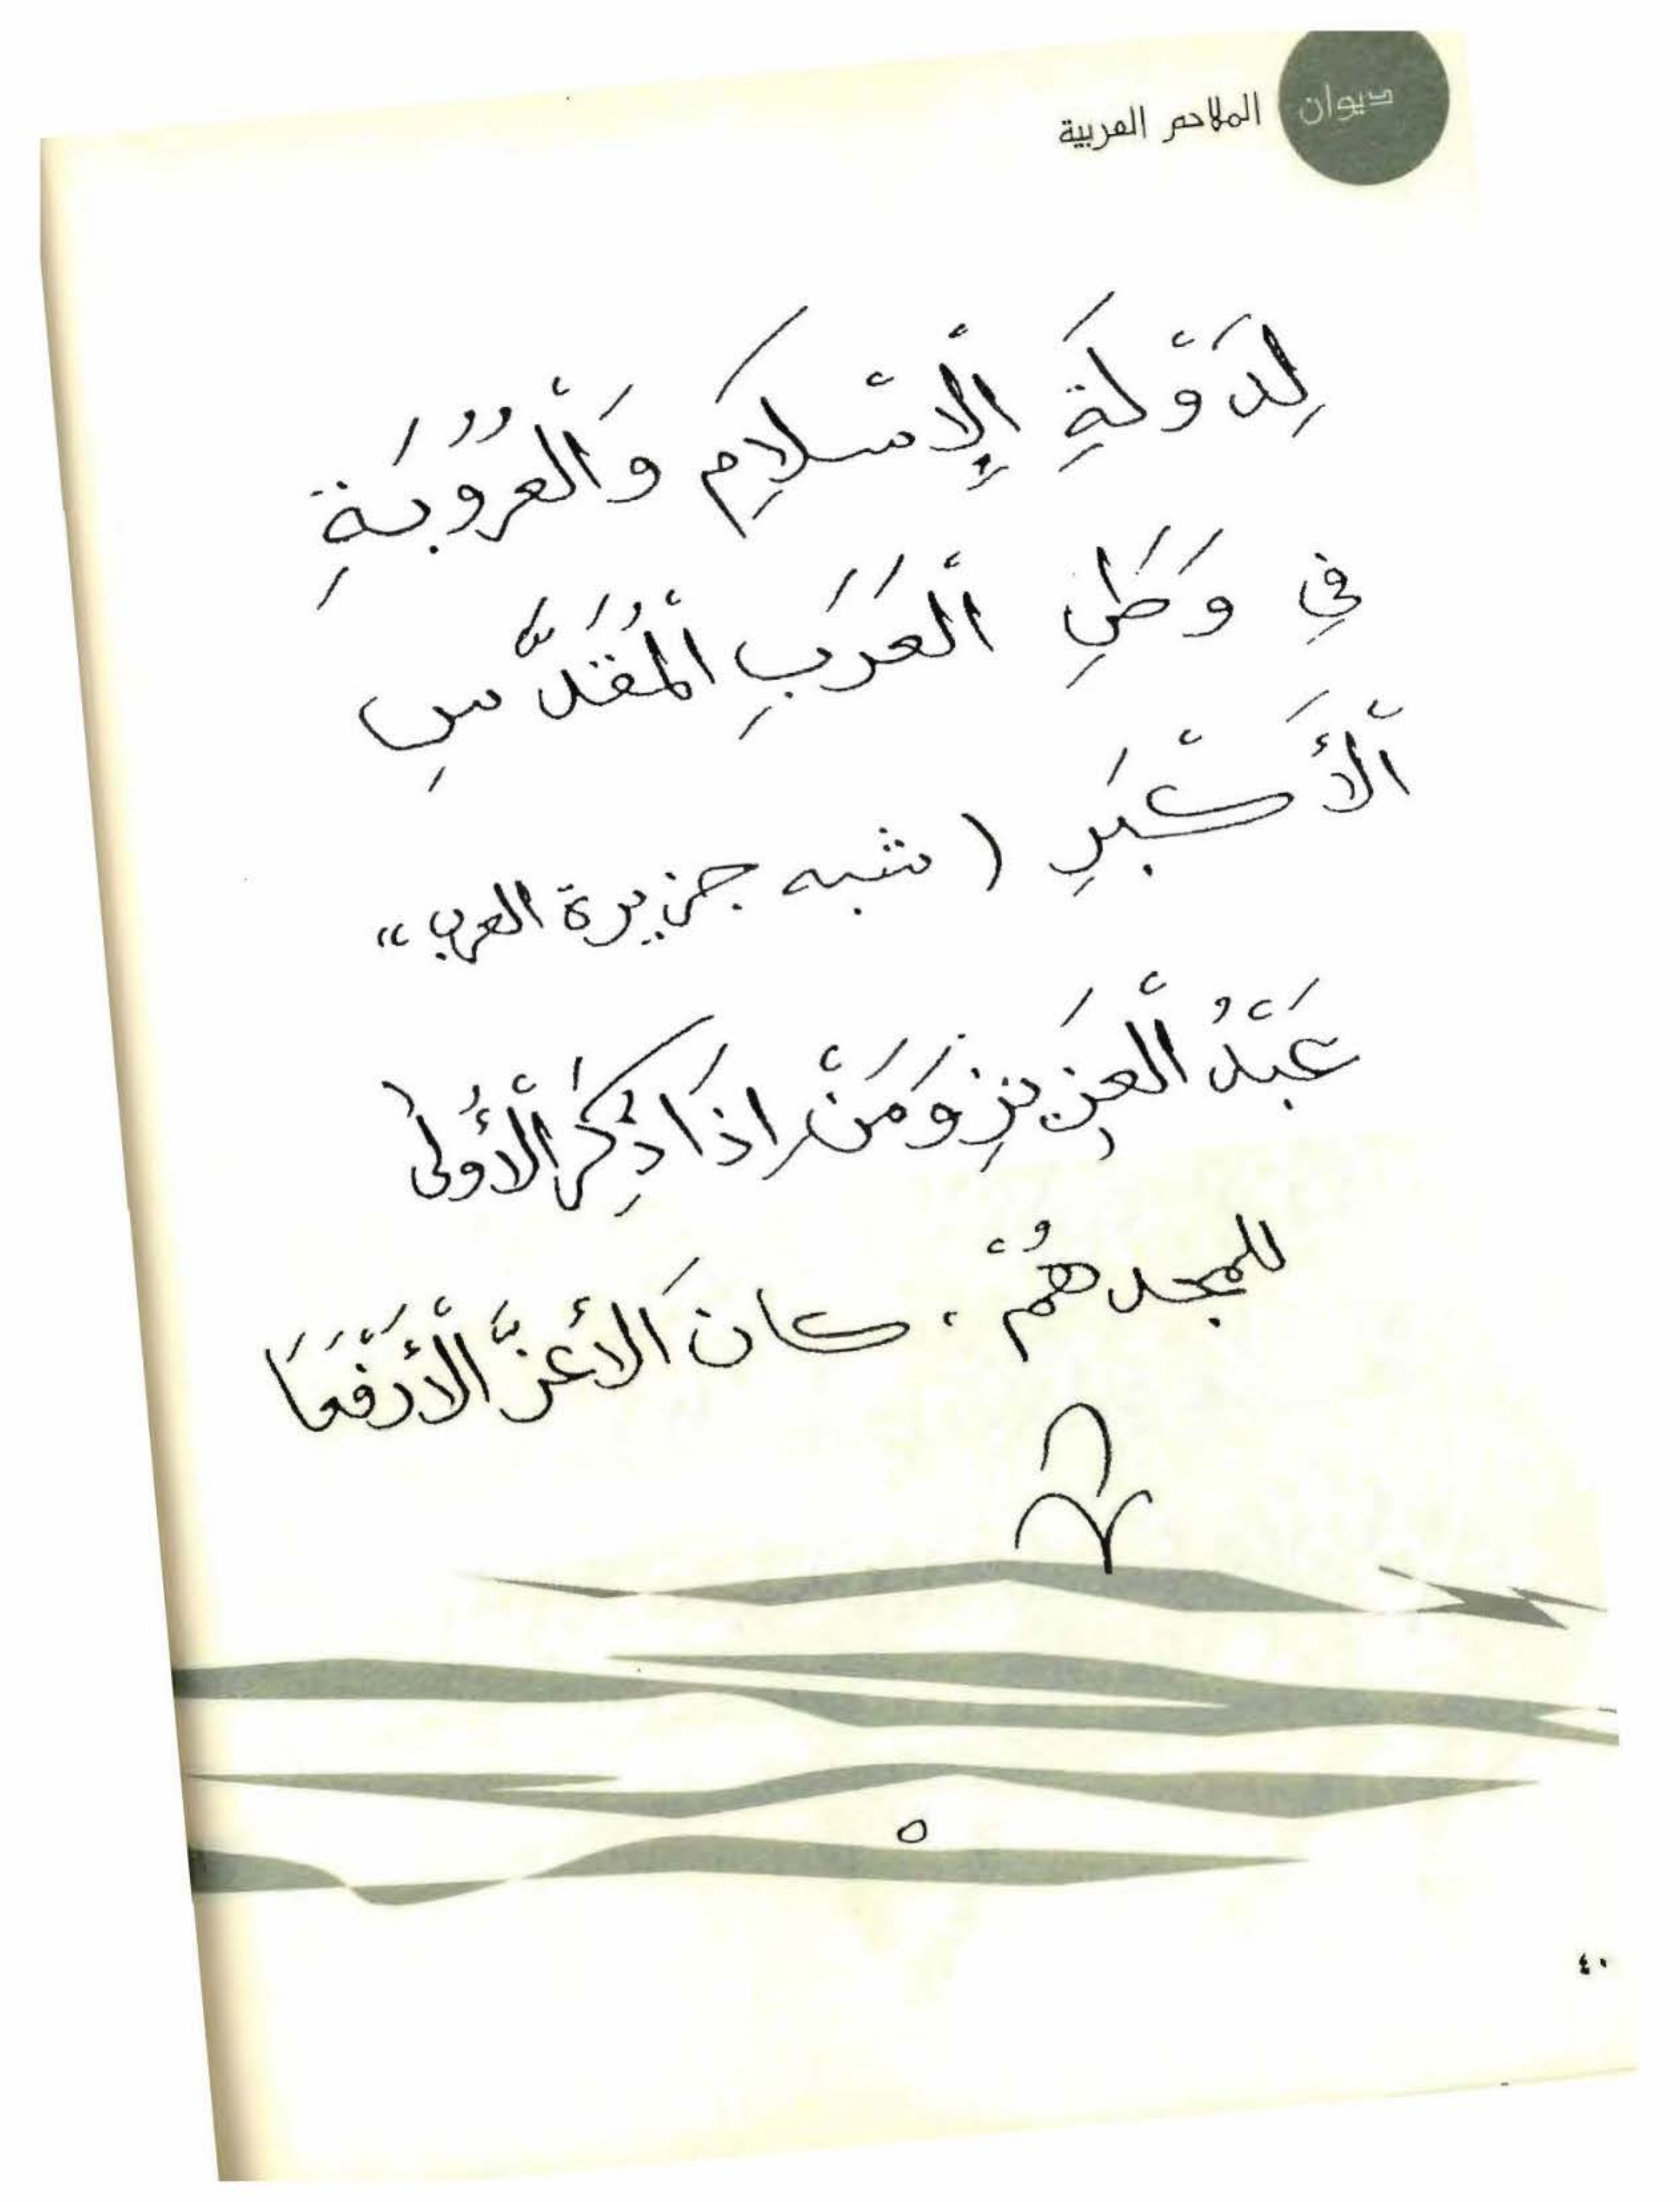 ديوان الملاحم العربية
لِدَوْلَةِ اْلإِسْلَامِ وَاْلعُرُوُبَةِ
فِي وَطَنِ اْلعَرَبِ اْلمُقَدَّسِ
اْلأَكْبَرِ ( شبه جزيرة العرب ))
عَبْدُ اْلعَزِيزِ وَمَنْ إِذَا ذُكِرَ اْلأُولى
للمجد هُمْ ، كانَ الأعزَّ اْلأَرْفَعَا
٥
٤٠